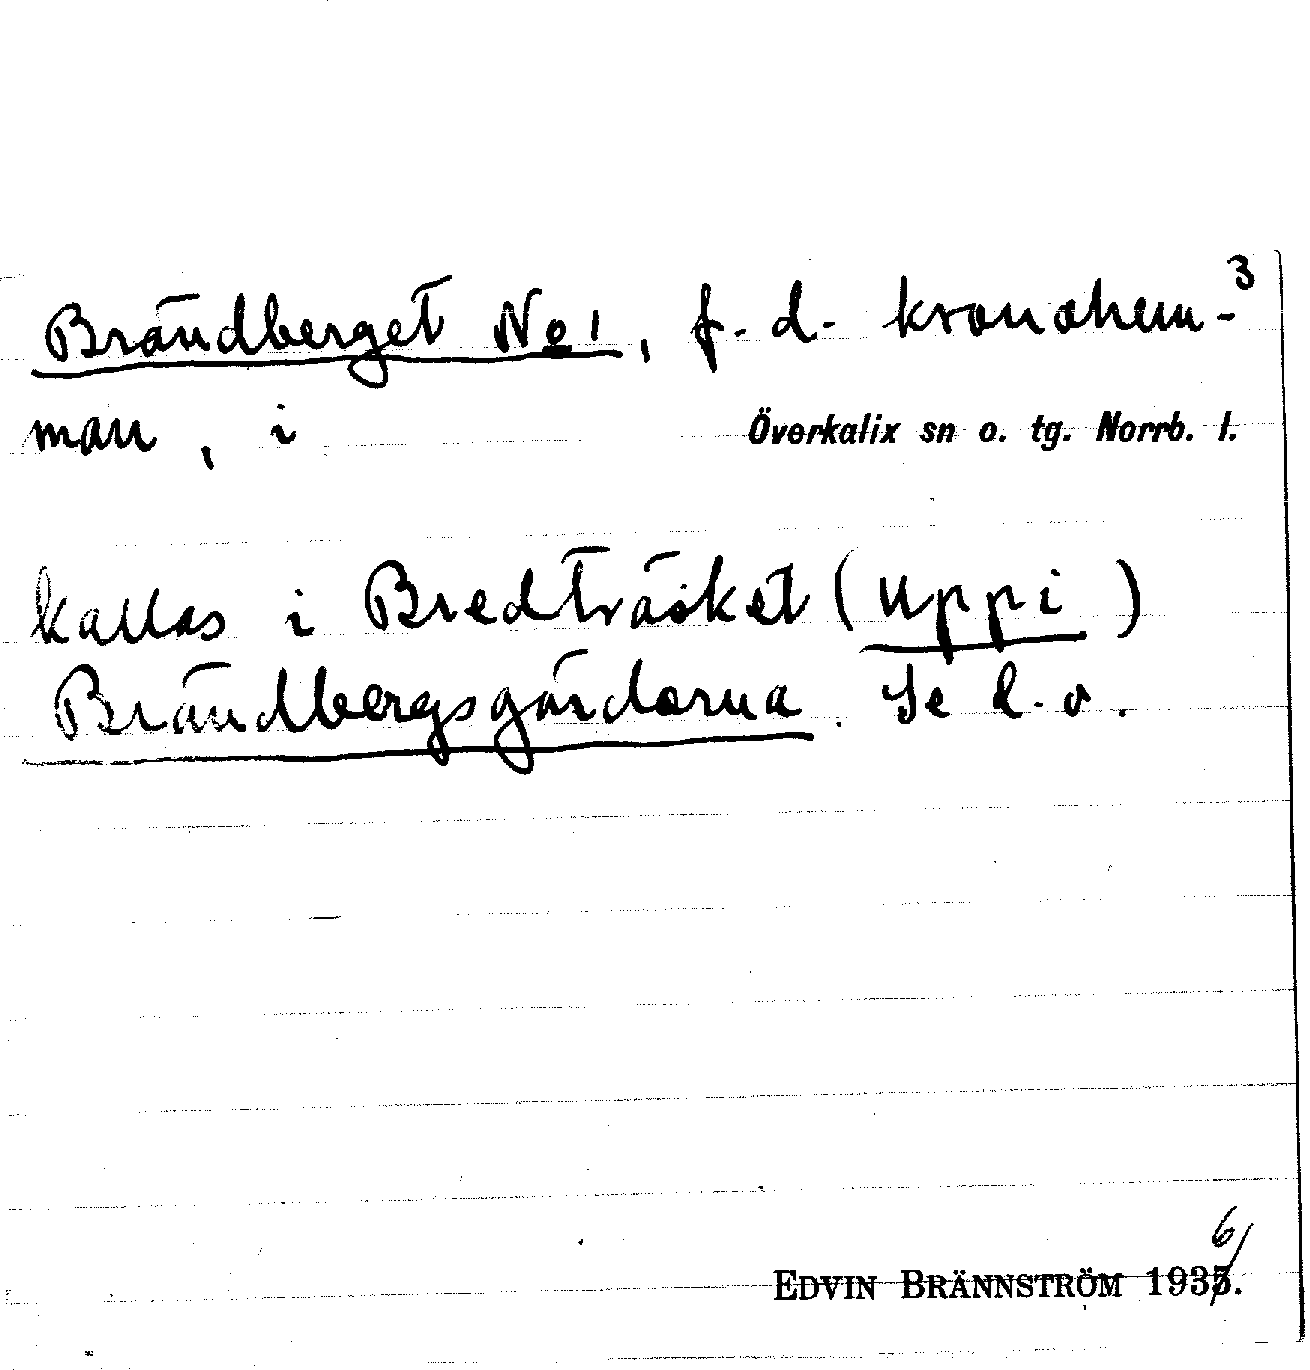 3
Brändberget No 1, f.d. kronohem-
man, i Överkalix sn o. tg. Norrb. l.
kallas i Bredträsket (Uppi)
Brändbergsgårdarna. Se d.o.
6
EDVIN BRÄNNSTRÖM 1935.